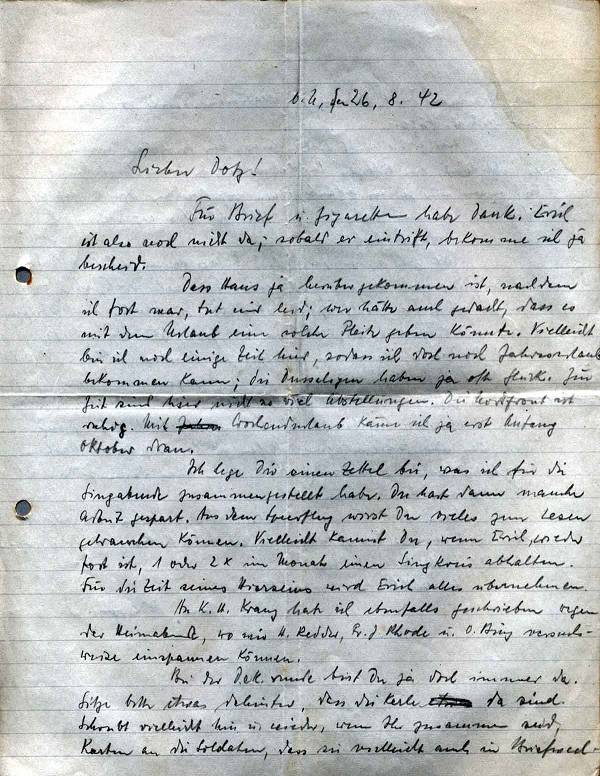 den 26. 8. 42
Lieber Dotz!
Für Brief u. Zigaretten habe Dank. Erich
ist also noch nicht da; sobald er eintrifft, bekomme ich ja
bescheid.
Dass Hans ja herübergekommen ist, nachdem
ich fort war, tut mir leid; wer hätte auch gedacht, dass es
mit dem Urlaub eine solche Pleite geben könnte. Vielleicht
bin ich noch einige Zeit hier, sodass ich doch noch Jahresurlaub
bekommen kann; die Dusseligen haben ja oft Glück. Zur
Zeit sind hier nicht so viel Abstellungen. Die Nordfront ist
ruhig. Mit Wochenendurlaub käme ich ja erst Anfang
Oktober dran.
Ich lege Dir einen Zettel bei, was ich für die
Singabende zusammengestellt habe. Du hast dann manche
Arbeit gespart. Aus dem wirst Du vieles zum Lesen
gebrauchen können. Vielleicht kannst Du, wenn Erich wieder
fort ist, 1 oder 2 x im Monat einen Singkreis abhalten.
Für die Zeit seines Hierseins wird Erich alles übernehmen.
An K. H. Kranz hab ich ebenfalls geschrieben wegen
der Heimabende, wo wir H. Redder, Rhode u. O. versuchs-
weise einspannen können.
Bei der runde bist Du ja doch immer da.
bitte etwas dahinter, dass die Kerle da sind.
Schreibt vielleicht hin u. wieder, wenn Ihr zusammen seid,
Karten an die Soldaten, dass sie vielleicht auch in Briefwech-